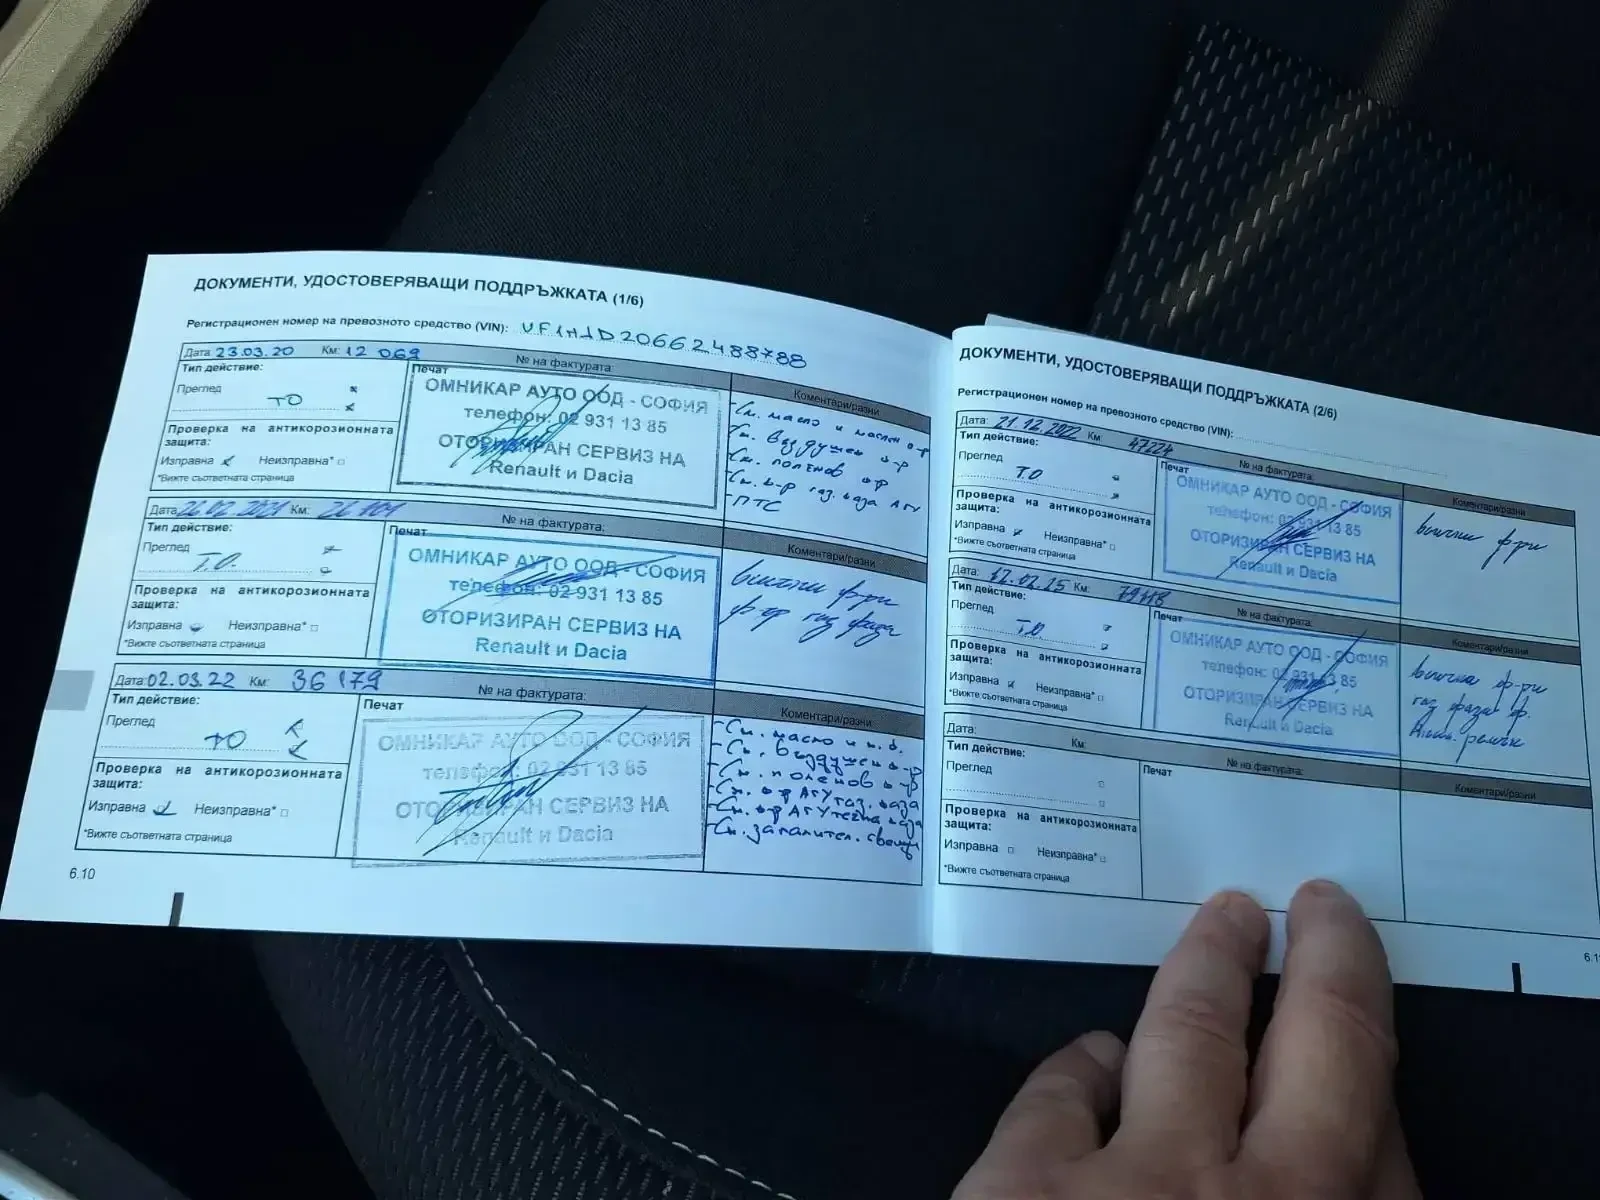 ДОКУМЕНТИ, УДОСТОВЕРЯВАЩИ ПОДДРЪЖКАТА (1/6)
Регистрационен номер на превозното средство (VIN): VF1H1D20662488788
Дата 23.03.20 Км: 12 069 № на фактурата:
Тип действие:
Преглед
ТО
Проверка на антикорозионната
защита:
Изправна Неизправна*
*Вижте съответната страница
Печат
ОМНИКАР АУТО ООД - СОФИЯ
телефон: 02 931 13 85
ОТОРИЗИРАН СЕРВИЗ НА
Renault и Dacia
Коментари/разни
- См. масло и маслен ф-р
- См. въздушен ф-р
- См. поленов ф-р
- См. ф-р газ. фаза АГУ
- ПТС
Дата 26.02.2021 Км: № на фактурата:
Тип действие:
Преглед
Т.О.
Проверка на антикорозионната
защита:
Изправна Неизправна*
*Вижте съответната страница
Печат
ОМНИКАР АУТО ООД - СОФИЯ
телефон: 02 931 13 85
ОТОРИЗИРАН СЕРВИЗ НА
Renault и Dacia
Коментари/разни
всички ф-ри
ф-ър газ фаза
Дата: 02.03.22 Км: 36 179 № на фактурата:
Тип действие:
Преглед
ТО
Проверка на антикорозионната
защита:
Изправна Неизправна*
*Вижте съответната страница
Печат
ОМНИКАР АУТО ООД - СОФИЯ
телефон: 02 931 13 85
ОТОРИЗИРАН СЕРВИЗ НА
Renault и Dacia
Коментари/разни
- См. масло и м.ф.
- См. въздушен ф-р
- См. поленов ф-р
- См. ф-р АГУ газ. фаза
- См. ф-р АГУ течна фаза
- См. запалител. свещи
6.10
ДОКУМЕНТИ, УДОСТОВЕРЯВАЩИ ПОДДРЪЖКАТА (2/6)
Регистрационен номер на превозното средство (VIN):
Дата: 21.12.2022 Км: 47224 № на фактурата:
Тип действие:
Преглед
Т.О
Проверка на антикорозионната
защита:
Изправна Неизправна*
*Вижте съответната страница
Печат
ОМНИКАР АУТО ООД - СОФИЯ
телефон: 02 931 13 85
ОТОРИЗИРАН СЕРВИЗ НА
Renault и Dacia
Коментари/разни
всички ф-ри
Дата: Км: № на фактурата:
Тип действие:
Преглед
Т.О.
Проверка на антикорозионната
защита:
Изправна Неизправна*
*Вижте съответната страница
Печат
ОМНИКАР АУТО ООД - СОФИЯ
телефон: 02 931 13 85
ОТОРИЗИРАН СЕРВИЗ НА
Renault и Dacia
Коментари/разни
всички ф-ри
газ фаза ф.
ремък
Дата: Км: № на фактурата:
Тип действие:
Преглед
Проверка на антикорозионната
защита:
Изправна Неизправна*
*Вижте съответната страница
Печат
Коментари/разни